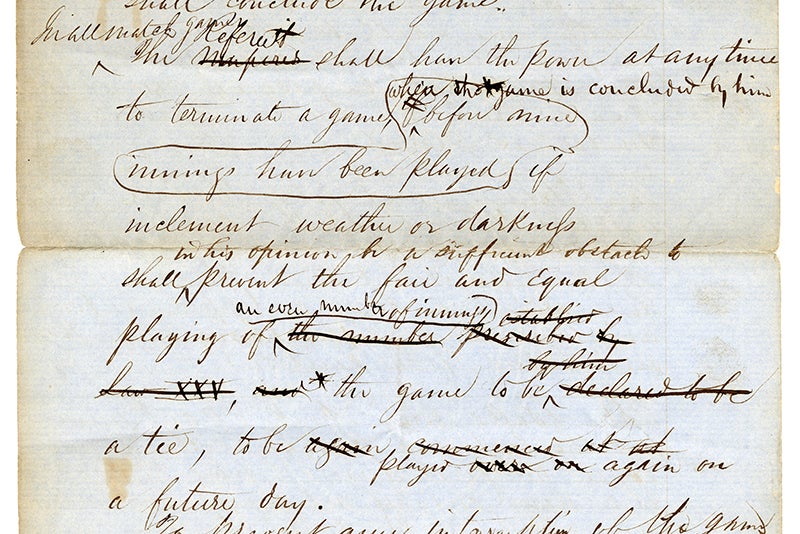 shall conclude the game.
In all match games Referee
The Umpires shall have the power at any time
when the game is concluded by him
to terminate a game, before nine
innings have been played, if
inclement weather or darkness
in his opinion be a sufficient obstacle to
shall prevent the fair and Equal
an even number of innings established
playing of the number prescribed by
by him
Law XXV, and * the game to be declared to be
a tie, to be again commenced at at
played over on again on
a future day.
To prevent any interruption of the game